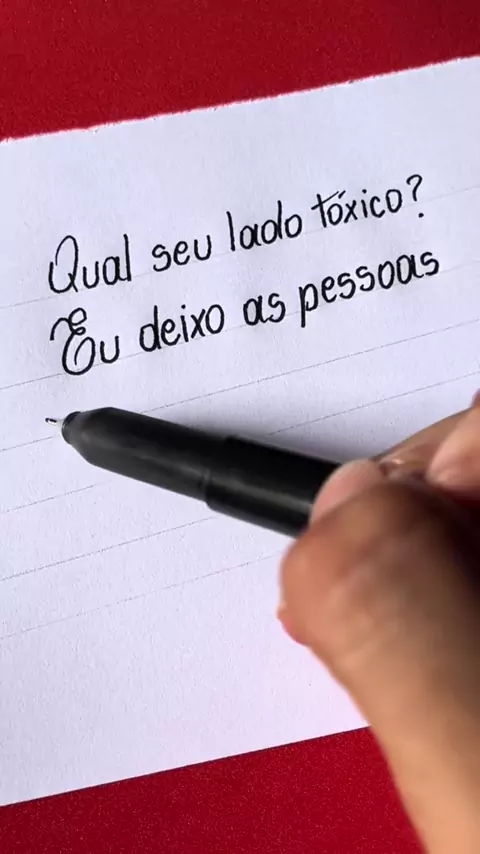 Qual seu lado tóxico?
Eu deixo as pessoas